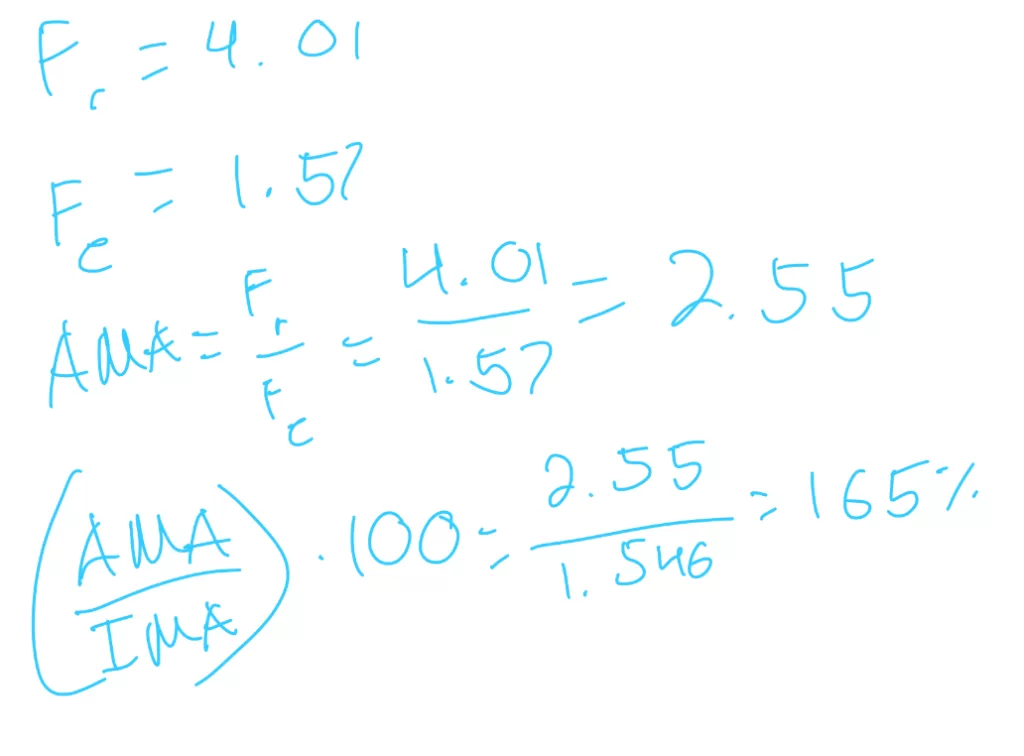 F_r = 4.01
F_e = 1.57
AMA = F_r / F_e = 4.01 / 1.57 = 2.55
(AMA / IMA) · 100 = 2.55 / 1.546 = 165%